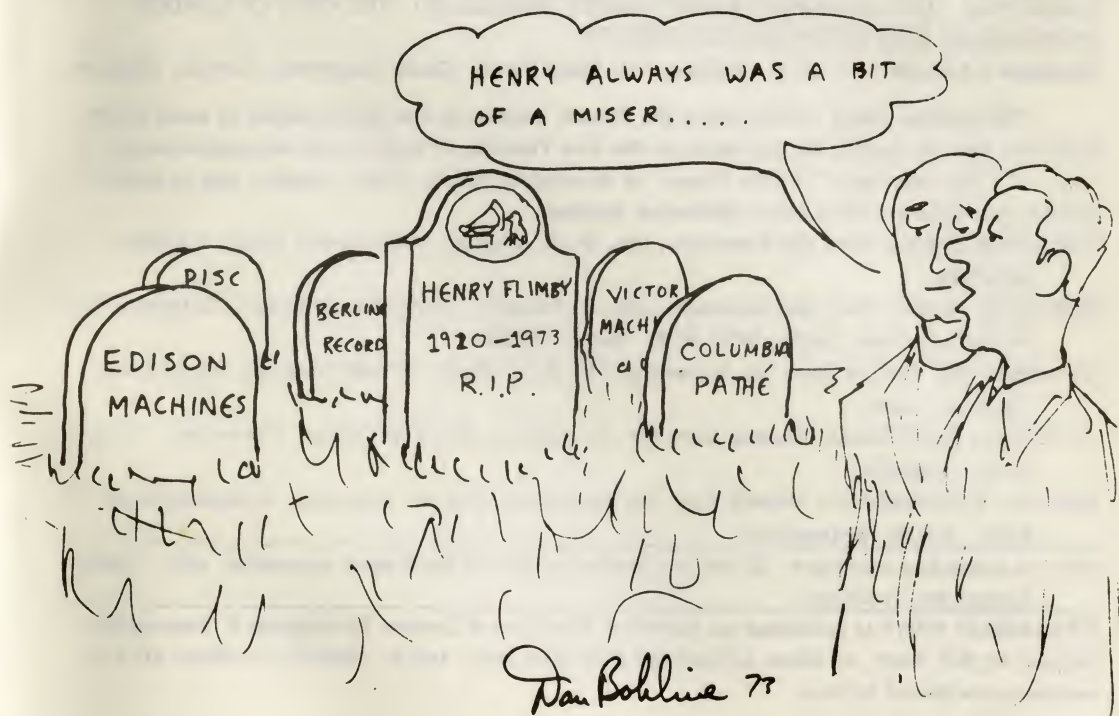 HENRY ALWAYS WAS A BIT
OF A MISER.....
DISC
EDISON
MACHINES
BERLIN
RECORD
HENRY FLIMBY
1920-1973
R.I.P.
VICTOR
MACHI
COLUMBIA
PATHÉ
Dan Bohline 73